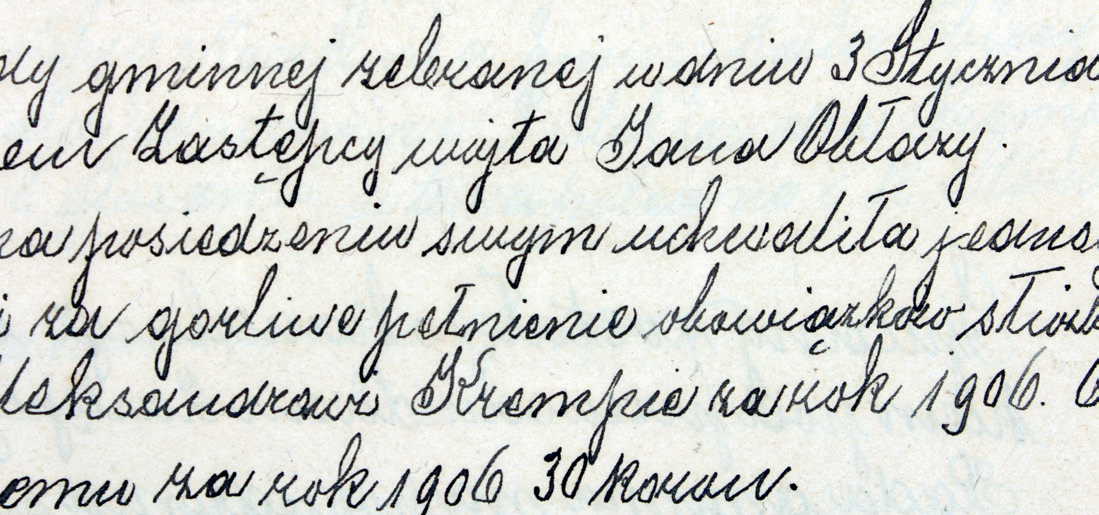 dy gminnej zebranej w dniu 3 Stycznia
em Zastępcy wójta Jana Obłazy.
na posiedzeniu swym uchwaliła jedno
i za gorliwe pełnienie obowiązków służb
leksandrowi Krempie za rok 1906.
emu za rok 1906 30 Koron.